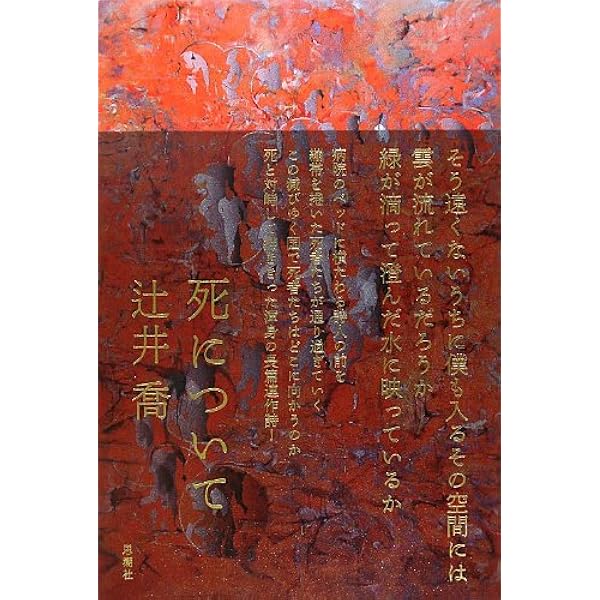 そう遠くないうちに僕も入るその空間には
雲が流れているだろうか
緑が滴って澄んだ水に映っているか
病院のベッドに横たわる詩人の前を
繃帯を捲いた死者たちが通り過ぎていく
この滅びゆく国で死者たちはどこに向かうのか
死と対峙して書き切った渾身の長篇連作詩!
死について
辻井喬
思潮社